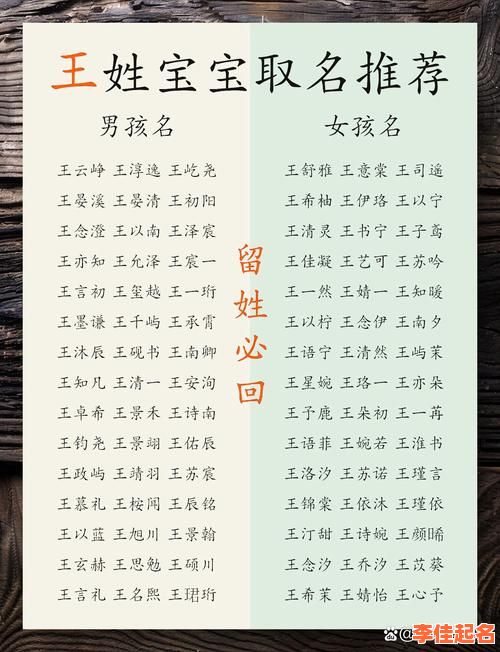 王姓宝宝取名推荐
男孩名
王云峥 王淳逸 王屹尧
王晏溪 王晏清 王初阳
王念澄 王以南 王泽宸
王亦知 王允泽 王宸一
王言初 王玺越 王一珩
王墨谦 王千屿 王承霄
王沐辰 王砚书 王南卿
王知凡 王清一 王安洵
王卓希 王景禾 王诗南
王钧尧 王景翊 王佑辰
王政屿 王靖羽 王苏宸
王慕礼 王桉闻 王辰铭
王以蓝 王旭川 王景翰
王玄赫 王思勉 王硕川
王言礼 王名熙 王珺珩
留姓必回
女孩名
王舒雅 王意棠 王司遥
王希柚 王伊珞 王以宁
王清灵 王书宁 王子鸢
王佳凝 王艺可 王苏吟
王一然 王婧一 王知暖
王以柠 王念伊 王南夕
王语宁 王清然 王屿茉
王星婉 王珞一 王亦朵
王予鹿 王朵初 王一苒
王语菲 王婉若 王淮书
王洛汐 王苏诺 王瑾言
王锦棠 王依沐 王瑾依
王汀甜 王诗婉 王颜晞
王念汐 王乔汐 王苡葵
王希茉 王婧怡 王心予
李佳起名